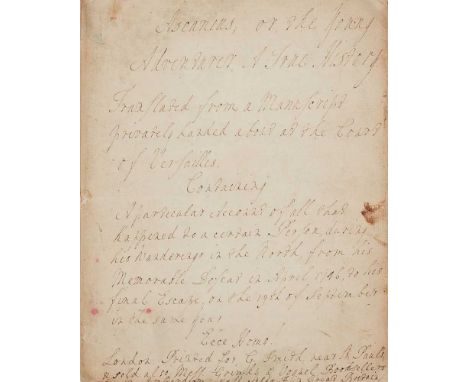 Ascanius, or the Young
Adventurer A True History
Translated from a Manuscript
privately handed about at the Court
of Versailles.
Containing
A particular Account of all that
happened to a certain Person during
his Wanderings in the North, from his
Memorable Defeat in April, 1746, to his
final Escape, on the 19th of September
in the same year
Ecce Homo!
London Printed for G. Smith, near St Pauls
& sold also